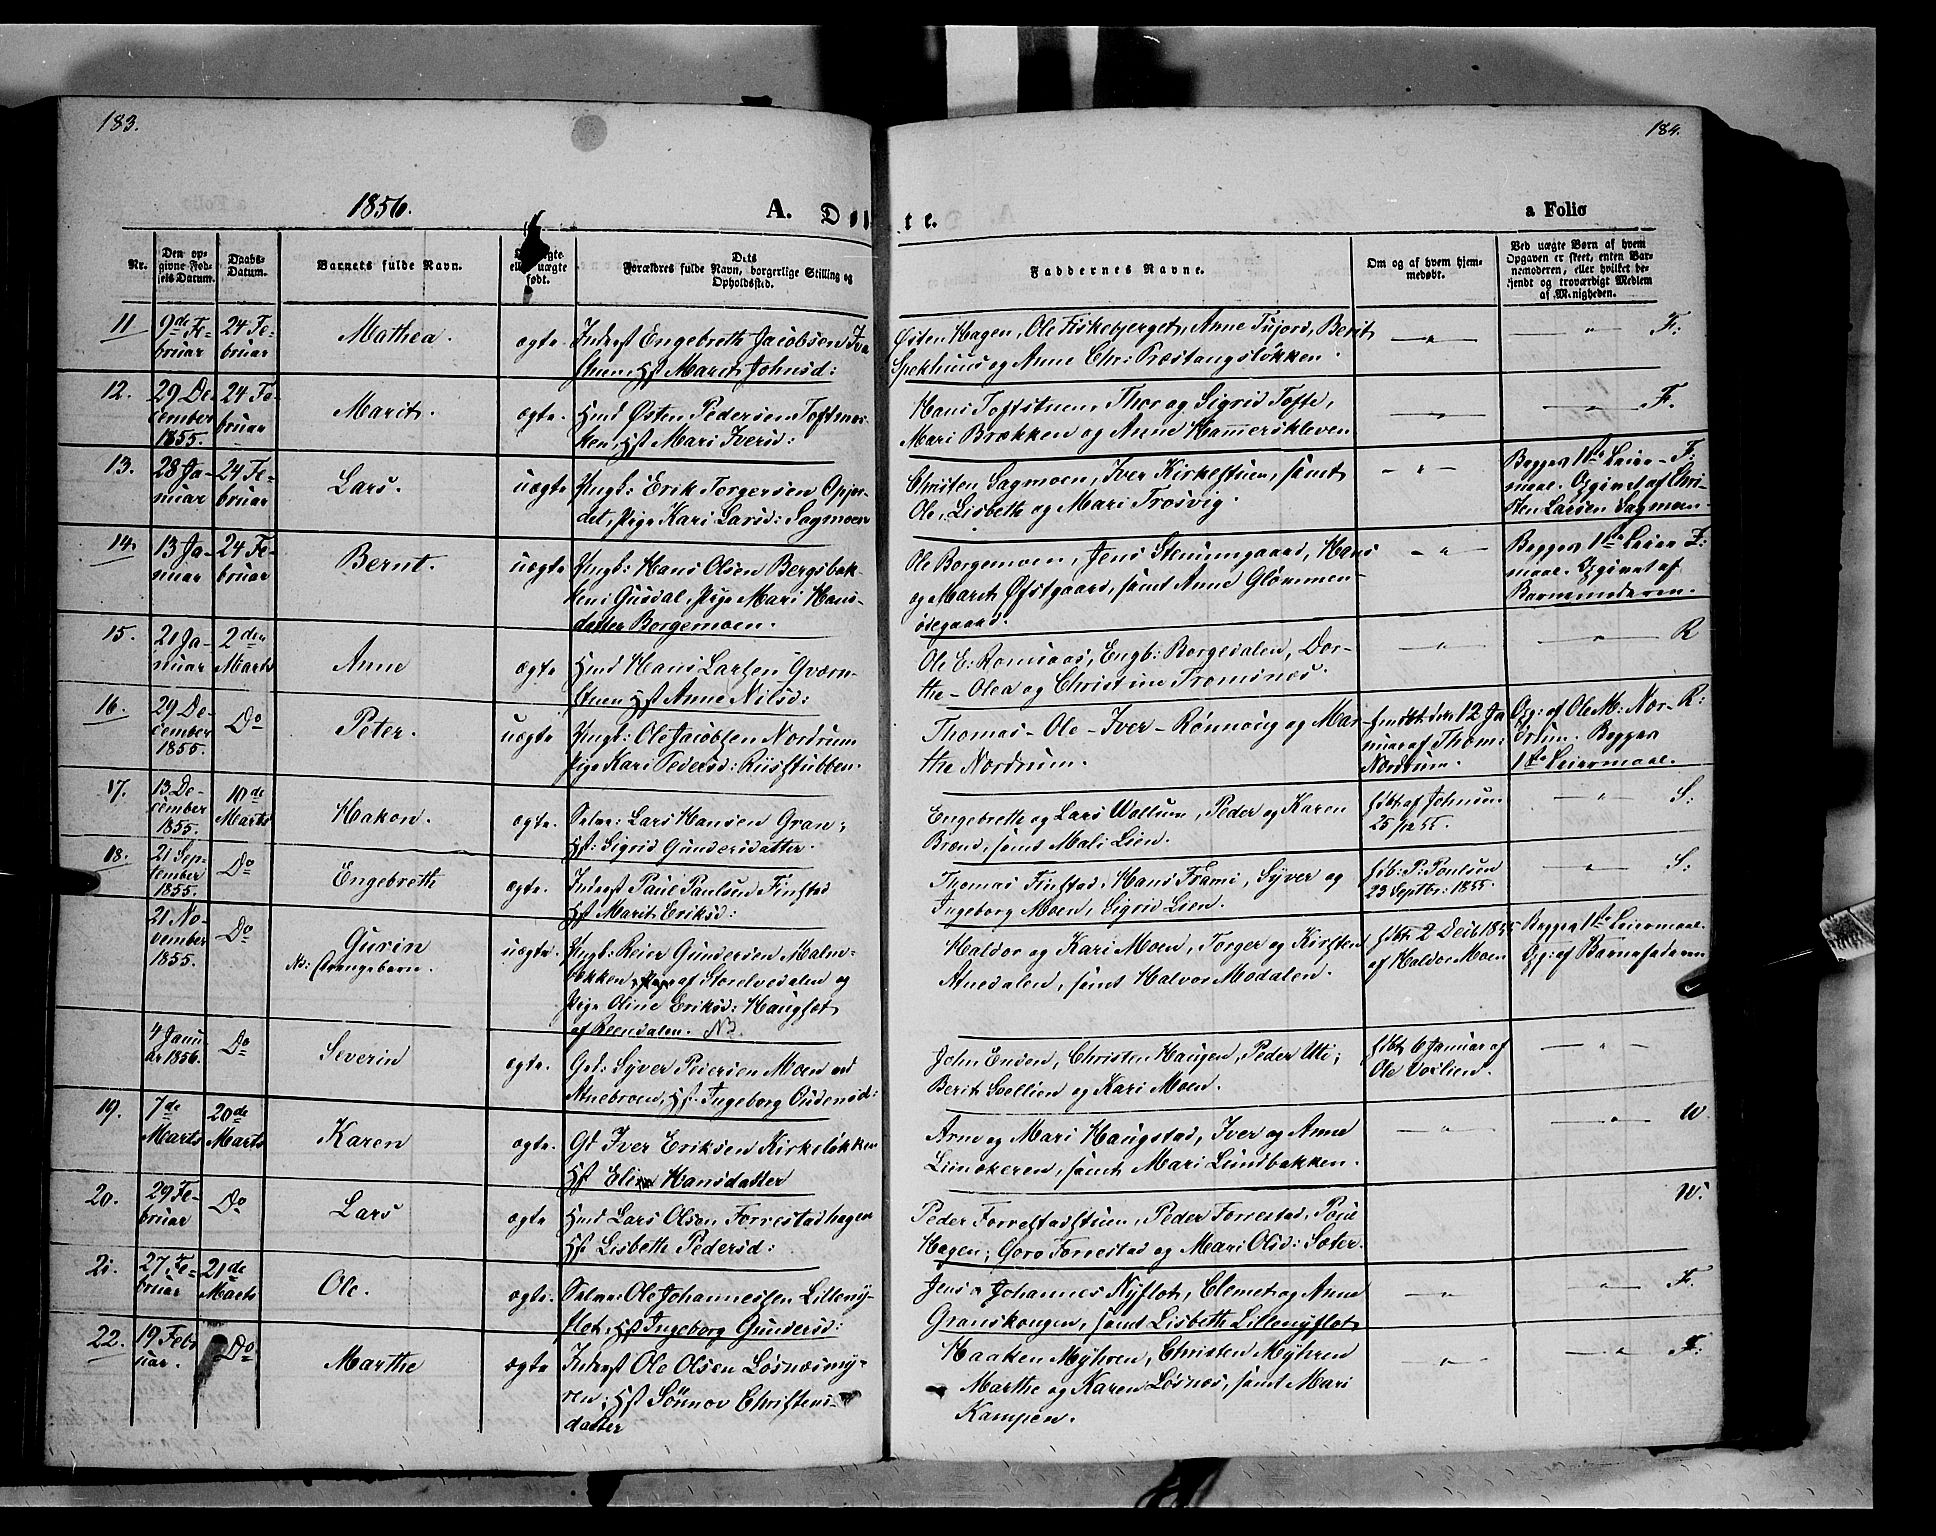 183.
184.
1856.
A. D
te.
a Folio
Nr.
Den op-
givne Fød-
sels Datum.
Daabs-
Datum.
Barnets fulde Navn.
uægte
født.
Dets
Forældres fulde Navn, borgerlige Stilling og
Opholdssted.
Faddernes Navne.
Om og af hvem hjem-
medøbt.
Ved uægte Børn af hvem
Opgaven er skeet, enten Bar-
nemoderen, eller hvilket be-
kjendt og troværdigt Medlem
af Menigheden.
11
9de Fe-
bruar
24 Fe-
bruar
Mathea.
ægte.
Inderst Engebreth Jacobsen
Hst Marit Johnsd:
Østen Hagen, Ole Fiskebjerget, Anne, Berit
Spekhuus og Anne Chr: Præstangsløkken.
F:
12.
29 De-
cember
1855.
24 Fe-
bruar
Marit.
ægte.
Hmd Østen Pedersen
Hst Mari Iversd:
Hans Toftstuen, Thor og Sigrid Tofte,
Mari Brækken og Anne Hammerskleven
F.
13.
28 Ja-
nuar
24 Fe-
bruar
Lars.
uægte
Ungk: Erik Torgersen
Pige Kari Larsd: Sagmoen
Christen Sagmoen, Iver Kirkestuen, samt
Ole, Lisbeth og Mari Trosvig.
Begges 1ste Leier- F:
maal. Opgivet af Chri-
sten Larsen Sagmoen-
14.
13 Ja-
nuar
24 Fe-
bruar
Bernt.
uægte
Ungk: Hans Olsen Bergsbak-
ken i Gusdal, Pige Mari Hans-
datter Borgemoen.
Ole Borgemoen, Jens Steinmgaard, Hans
og Marit Østgaard, samt Anne Glømmen-
ødegaard.
Begges 1ste Leier F:
maal. Opgivet af
Barnemoderen.
15.
21 Ja-
nuar
2den
Marts
Anne
ægte
Hmd Hans Larsen Qværn-
stuen Hst Anne Nilsd:
Ole E: Romsaas, Engb: Borgedalen, Dor-
the - Olea og Christine Tromsnes.
R
16.
29 De-
cember
1855.
Do
Peter.
uægte
Ungk: Ole Jacobsen Nordrum
Pige Kari Pedersd: Riisstubben.
Thomas - Ole - Iver - Rønnoug og Mar-
the Nordrum.
hmdbt den 12 Ja
nuar af Thom:
Nordrum.
Opg: af Ole M: Nor- R:
Begges
1ste Leiermaal.
17.
13 De-
cember
1855.
10de
Marts
Hakon.
ægte.
Selve: Lars Hansen Gran,
Hst: Sigrid Gundersdatter.
Engebreth og Lars Wollum, Peder og Karen
Brænd, samt Mali Lien.
hdbt af Johnsen
25/12 55.
S:
18.
21 Sep-
tember
1855.
Do
Engebreth
ægte.
Inderst Paul Paulsen Finstad
Hst Marit Eriksd:
Thomas Finstad, Hans Frami, Syver og
Ingeborg Moen, Sigrid Lien.
hdb: P: Poulsen
23 Septbr: 1855.
S:
21 No-
vember
1855.
Do
Gurin
Nb: Drengebarn.
uægte.
Ungk: Reier Gundersen Malm-
bækken af Storelvedalen og
Pige Oline Eriksd: Haugflot
af Reendalen. NB.
Haldor og Kari Moen, Torger og Kirsten
Atnedalen, samt Halvor Modalen.
hdbt 2 Decb 1855
af Haldor Moen
Begges 1ste Leiermaal.
Opg: af Barnefaderen
4 Janu
ar 1856.
Do
Severin
ægte.
Gd: Syver Pedersen Moen ved
Atnebroen, Hst. Ingeborg Oudensd:
John Enden, Christen Haugen, Peder Uti,
Berit Sollien og Kari Moen.
hdbt 6 Januar af
Ole
19.
7de
Marts
20de
Marts
Karen
ægte.
Gd Iver Eriksen Kirkeløkken
Hst Eline Hansdatter
Arne og Mari Haugstad, Iver og Anne
Liinøkeren, samt Mari Lundbakken.
W.
20.
29 Fe-
bruar
Do
Lars
ægte
Hmd Lars Olsen Forrestadhagen
Hst Lisbeth Pedersd:
Peder Forrestadstuen, Peder Forrestad, Paul
Hagen, Goro Forrestad og Mari Olsd: Sæter.
W.
21.
27 Fe-
bruar
21de
Marts
Ole.
ægte.
Selve: Ole Johannessen Lilleny-
flot, Hst Ingeborg Gundersd:
Jens o Johannes Nyflot, Clemet og Anne
Granskougen, samt Lisbeth Lillenyflot
F.
22.
19 Febr
uar.
Do
Marthe
ægte
Inderst Ole Olsen Løsnæsmy-
ren, Hst Sønnov Christens-
datter
Haaken Myhren, Christen Myhren
Marthe og Karen Løsnæs, samt Mari
Kampen.
F: